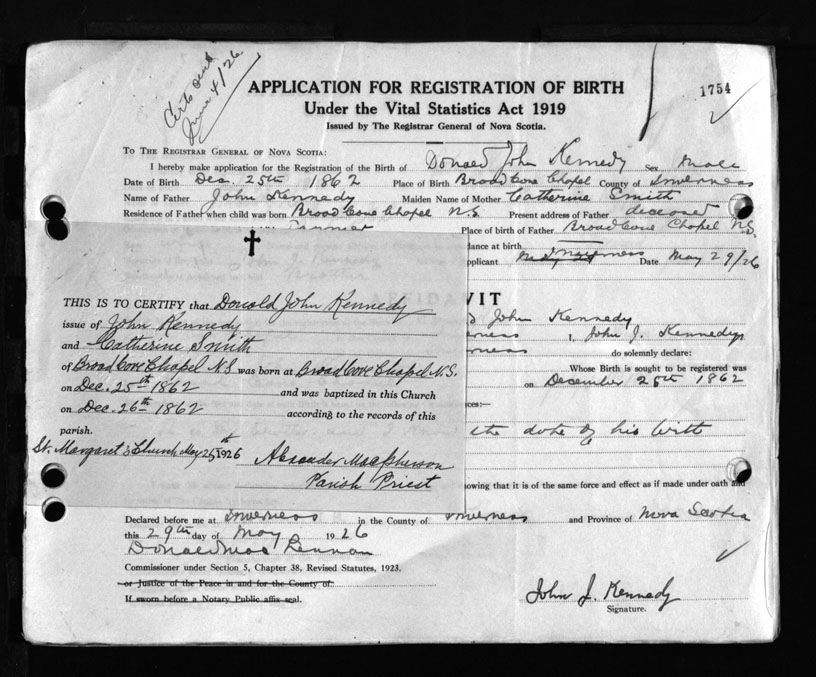 Certs sent
June 4/26
APPLICATION FOR REGISTRATION OF BIRTH
Under the Vital Statistics Act 1919
Issued by The Registrar General of Nova Scotia.
1754
To The Registrar General of Nova Scotia:
I hereby make application for the Registration of the Birth of Donald John Kennedy Sex Male
Date of Birth Dec. 25th 1862 Place of Birth Broad Cove Chapel County of Inverness
Name of Father John Kennedy Maiden Name of Mother Catherine Smith
Residence of Father when child was born Broad Cove Chapel N.S Present address of Father deceased
Place of birth of Father Broad Cove Chapel N.S.
dance at birth
pplicant Inverness Date May 29/26
VIT
John Kennedy
erness I, John J. Kennedy
erness do solemnly declare:
Whose Birth is sought to be registered was
on December 25th 1862
ces:—
the date of his birth
nowing that it is of the same force and effect as if made under oath and
THIS IS TO CERTIFY that Donald John Kennedy
issue of John Kennedy
and Catherine Smith
of Broad Cove Chapel N.S. was born at Broad Cove Chapel N.S.
on Dec. 25th 1862 and was baptized in this Church
on Dec. 26th 1862 according to the records of this
parish.
St. Margaret's Church May 25th 1926 Alexander Macpherson
Parish Priest
Declared before me at Inverness in the County of Inverness and Province of Nova Scotia
this 29th day of May 1926
Donald Mac Lennan
Commissioner under Section 5, Chapter 38, Revised Statutes, 1923.
or Justice of the Peace in and for the County of
If sworn before a Notary Public affix seal.
John J. Kennedy
Signature.